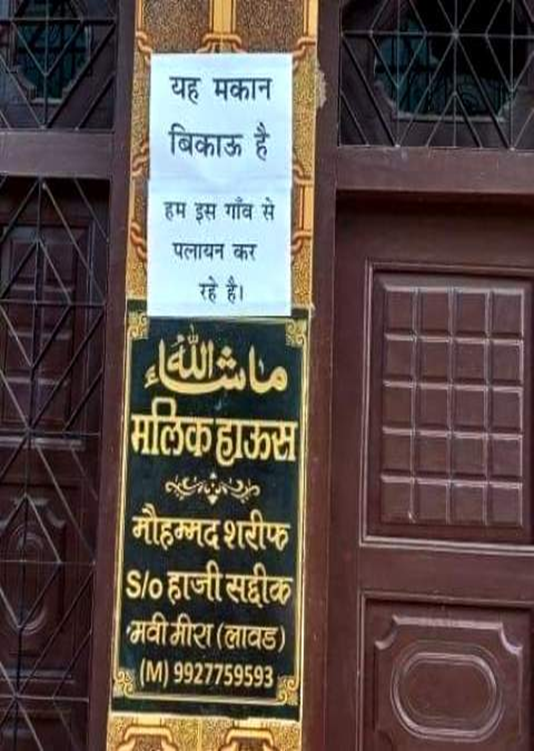 यह मकान
बिकाऊ है
हम इस गाँव से
पलायन कर
रहे है।
ماشاءالله
मलिक हाऊस
मौहम्मद शरीफ
S/o हाजी सद्दीक
मवी मीरा (लावड)
(M) 9927759593